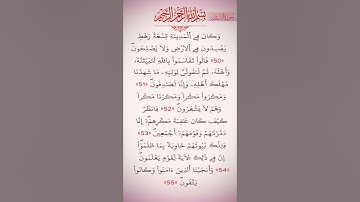 بِسْمِ اللَّهِ الرَّحْمَٰنِ الرَّحِيمِ
وَكَانَ فِے اِ۬لْمَدِينَةِ تِسْعَةُ رَهْطٖ
يُفْسِدُونَ فِے اِ۬لَارْضِ وَلَا يُصْلِحُونَۖ
«50» قَالُواْ تَقَاسَمُواْ بِاللَّهِ لَنُبَيِّتَنَّهُۥ
وَأَهْلَهُۥ ثُمَّ لَنَقُولَنَّ لِوَلِيِّهِۦ مَا شَهِدْنَا
مُهْلَكَ أَهْلِهِۦ وَإِنَّا لَصَٰدِقُونَۖ «51»
وَمَكَرُواْ مَكْراٗ وَمَكَرْنَا مَكْراٗ
وَهُمْ لَا يَشْعُرُونَۖ «52» فَانظُرْ
كَيْفَ كَانَ عَٰقِبَةُ مَكْرِهِمُۥٓ إِنَّا
دَمَّرْنَٰهُمْ وَقَوْمَهُمُۥٓ أَجْمَعِينَۖ «53»
فَتِلْكَ بُيُوتُهُمْ خَاوِيَةَۢ بِمَا ظَلَمُوٓاْۖ
إِنَّ فِے ذَٰلِكَ لَأٓيَةٗ لِّقَوْمٖ يَعْلَمُونَۖ
«54» وَأَنجَيْنَا اَ۬لذِينَ ءَامَنُواْ وَكَانُواْ
يَتَّقُونَۖ «55»